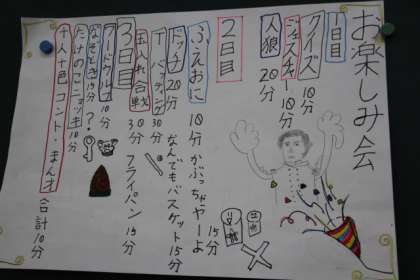 お楽しみ会
1日目
クイズ 10分
ジェスチャー 10分
人狼 20分
2日目
ふえおに 10分 かぶっちゃやーよ 15分
ドッチ 20分 なんでもバスケット 15分
T バッティング 30分
玉入れ合戦 30分 フライパン 15分
3日目
ワードウルフ 10分
なぞとき 15分 ?
たけのこニョッキ 10分
十人十色コント・まん才 合計10分